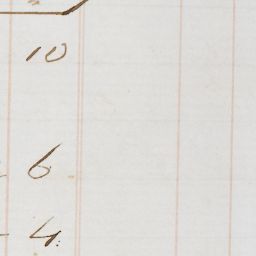 "
10
6
4.